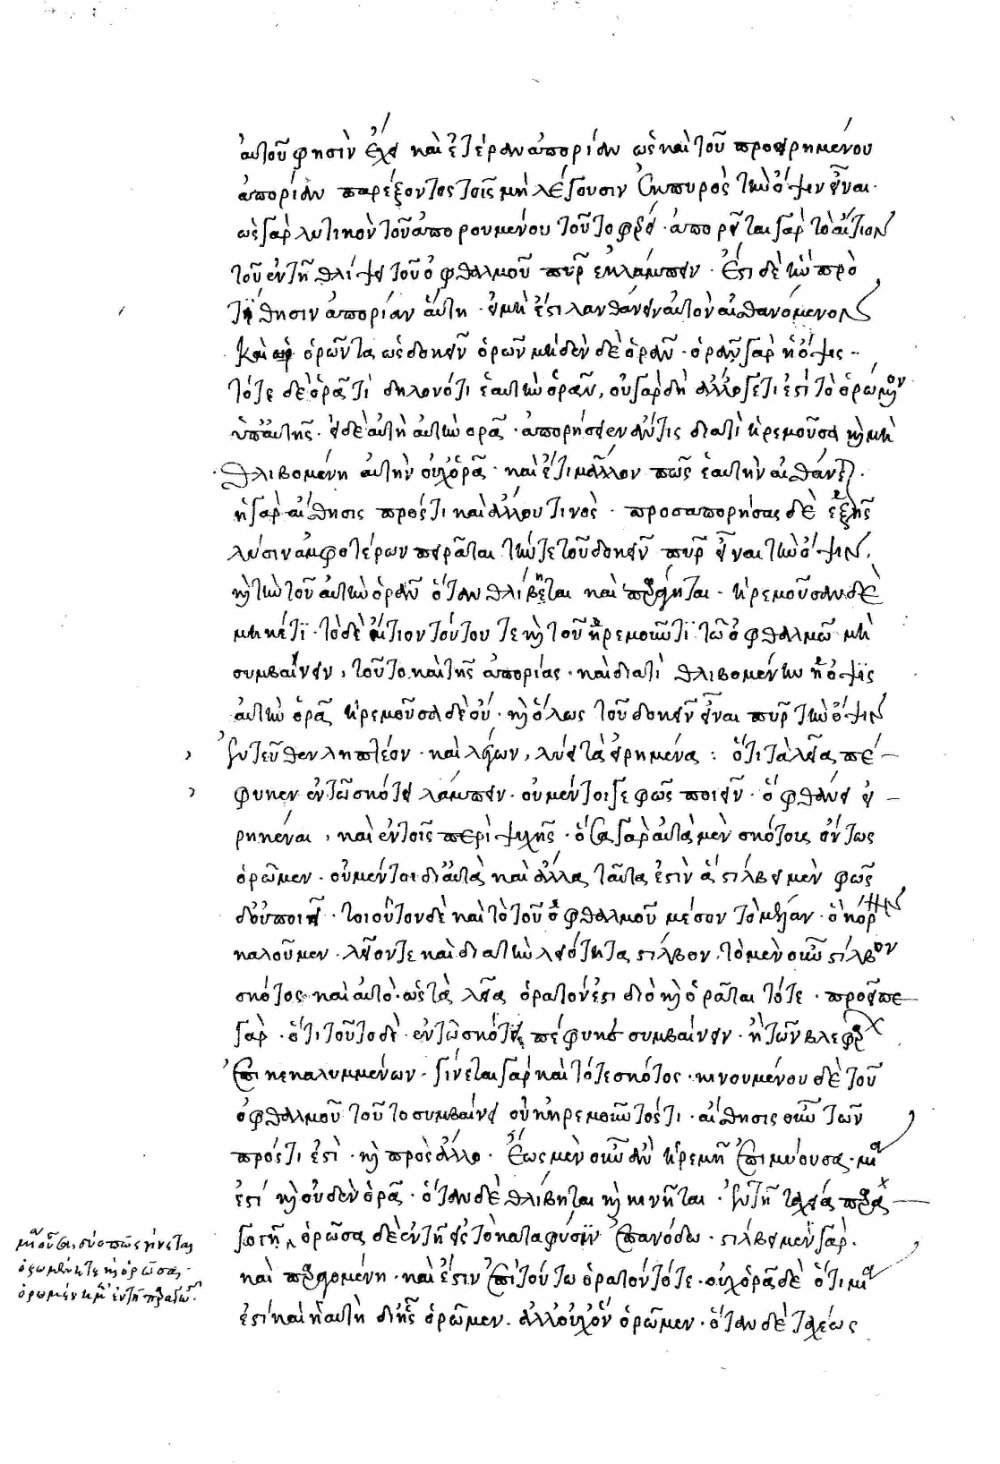 αὐτοῦ φησὶν ἔχει καὶ ἑτέραν ἀπορίαν ὡς καὶ τοῦ προειρημένου
ἀπορίαν παρέξοντος τοῖς μὴ λέγουσιν ἐκ πυρὸς τὴν ὄψιν εἶναι.
ὡς γὰρ λυτικὸν τοῦ ἀπορουμένου τοῦτο φέρει. ἀπορεῖται γὰρ τὸ αἴτιον
τοῦ ἐν τῇ θλίψει τοῦ ὀφθαλμοῦ πῦρ ἐκλάμπειν. ἔτι δὲ καὶ προ
τίθησιν ἀπορίαν αὕτη. εἰ μὴ ἔστι λανθάνειν αὐτὸν αἰσθανόμενον
καὶ ὁρῶντα ὡς δοκεῖν ὁρᾶν μηδὲν δὲ ὁρᾶν. ὁρᾶν γὰρ ἡ ὄψις
τότε δὲ ὁρᾷ τί δηλονότι ἑαυτὴν ὁρᾶν, οὐ γὰρ δὴ ἄλλο γέ τι ἐστὶ τὸ ὁρώμενον
ὑπ' αὐτῆς. εἰ δὲ αὐτὴ αὑτὴν ὁρᾷ. ἀπορήσειεν ἄν τις διατί ἠρεμοῦσα καὶ μὴ
θλιβομένη αὑτὴν οὐχ ὁρᾷ. καὶ ἔτι μᾶλλον πῶς ἑαυτὴν αἰσθάνεται.
ἡ γὰρ αἴσθησις πρός τι καὶ ἄλλου τινός. προσαπορήσας δὲ ἑξῆς
λύσιν ἀμφοτέρων πειρᾶται τήν τε τοῦ δοκεῖν πῦρ εἶναι τὴν ὄψιν.
καὶ τὴν τοῦ αὑτὴν ὁρᾶν ὅταν θλίβηται καὶ ἠρεμοῦσαν δὲ
μηκέτι. τὸ δὲ αἴτιον τούτου τε καὶ τοῦ ἠρεμοῦντι τῷ ὀφθαλμῷ μὴ
συμβαίνειν, τοῦτο καὶ τῆς ἀπορίας. καὶ διατί θλιβομένη ἡ ὄψις
αὑτὴν ὁρᾷ ἠρεμοῦσα δὲ οὔ. καὶ ὅλως τοῦ δοκεῖν εἶναι πῦρ τὴν ὄψιν
ἐντεῦθεν ληπτέον. καὶ λέγων, λύει τὰ εἰρημένα: ὅτι τὰ λεῖα πέ
φυκεν ἐν τῷ σκότει λάμπειν. οὐ μέντοι γε φῶς ποιεῖν. ὃ φθάνει εἰ
ρηκέναι, καὶ ἐν τοῖς περὶ ψυχῆς. ὅσα γὰρ αὐτὰ μὲν σκότους ὄντως
ὁρῶμεν. οὐ μέντοι δι' αὐτὰ καὶ ἄλλα ταῦτα ἐστὶν ἃ στίλβει μὲν φῶς
δ' οὐ ποιεῖ. τοιοῦτον δὲ καὶ τὸ τοῦ ὀφθαλμοῦ μέσον τὸ μέλαν. ὃ κόρην
καλοῦμεν. λεῖόν τε καὶ διὰ τὴν λειότητα στίλβον. τὸ μὲν οὖν στίλβον
σκότος καὶ αὐτό. ὡς τὰ λεῖα ὁρατόν ἐστι διὸ καὶ ὁρᾶται τότε. προεῖπε
γὰρ. ὅτι τοῦτο δὲ. ἐν τῷ σκότει πέφυκε συμβαίνειν. ἢ τῶν βλεφάρων
ἐπικεκαλυμμένων. γίνεται γὰρ καὶ τότε σκότος. κινουμένου δὲ τοῦ
ὀφθαλμοῦ τοῦτο συμβαίνει οὐκ ἠρεμοῦντος ὅτι. αἴσθησις οὖν τῶν
πρός τι ἐστὶ. καὶ πρὸς ἄλλο. ἕως μὲν οὖν ἂν ἠρεμῇ ἐπιμύουσα. μία
ἐστὶ καὶ οὐδὲν ὁρᾷ. ὅταν δὲ θλίβηται καὶ κινῆται. ἐν τῇ ταχείᾳ
ὁρῶσα δὲ ἐν τῇ εἰς τὸ κατὰ φύσιν ἐπανόδῳ. στίλβει μὲν γὰρ.
καὶ. καὶ ἔστιν ἐπὶ τούτῳ ὁρατὸν τότε. οὐχ ὁρᾷ δὲ ὅτι μία
ἐστὶ καὶ ἡ αὐτὴ δι' ἧς ὁρῶμεν. ἀλλ' οὐχ ὃν ὁρῶμεν. ὅταν δὲ ταχέως
μία οὖσα, δύο πως γίνεται
καὶ ὁρῶσα.
ὁρωμένη ἐν τῇ